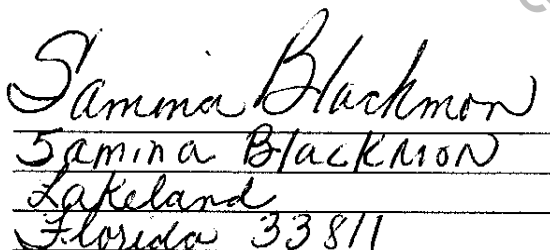 Samina Blackmon
Samina Blackmon
Lakeland
Florida 33811